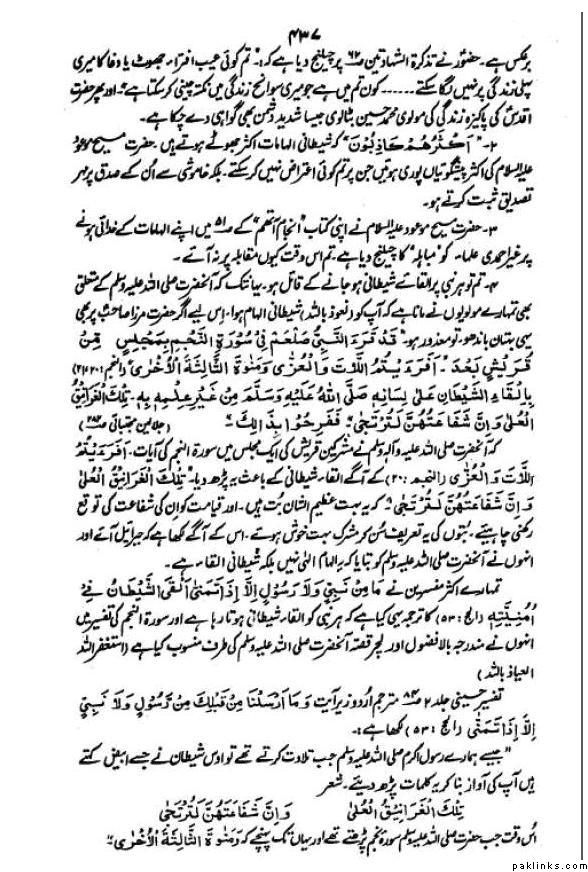 ۴۳۷
برعکس ہے۔ حضورؑ نے تذکرۃ الشہادتین ص۶۲ پر چیلنج دیا ہے کہ:۔ "تم کوئی عیب افتراء، جھوٹ یا دغا کا میری
پہلی زندگی پر نہیں لگا سکتے ------ کون تم میں ہے جو میری سوانح زندگی میں نکتہ چینی کر سکتا ہے"؛ اور پھر حضرت
اقدسؑ کی پاکیزہ زندگی کی مولوی محمد حسین بٹالوی جیسا شدید دشمن بھی گواہی دے چکا ہے۔
۲۔ "اَكْثَرُهُمْ كَاذِبُوْنَ" کہ شیطانی الہامات اکثر جھوٹے ہوتے ہیں۔ حضرت مسیح موعود
علیہ السلام کی اکثر پیشگوئیاں پوری ہوئیں جن پر تم کوئی اعتراض نہیں کر سکتے۔ بلکہ خاموشی سے اُن کے صدق پر مہر
تصدیق ثبت کرتے ہو۔
۳۔ حضرت مسیح موعود علیہ السلام نے اپنی کتاب "انجام آتھم" کے ص۵۱ میں اپنے الہامات کے خدائی ہونے
پر غیر احمدی علماء کو "مباہلہ" کا چیلنج دیا ہے۔ تم اس وقت کیوں مقابلہ پر نہ آئے۔
۴۔ تم تو ہر نبی پر القائے شیطانی ہو جانے کے قائل ہو۔ یہانتک کہ آنحضرت صلی اللہ علیہ وسلم کے متعلق
بھی تمہارے مولویوں نے مانا ہے کہ آپ کو (نعوذ باللہ) شیطانی الہام ہوا۔ اِس لیے اگر حضرت مرزا صاحبؑ پر بھی
یہی بہتان باندھو۔ تو معذور ہو۔ "قَدْ قَرَءَ النَّبِيُّ صَلْعَمْ فِيْ سُوْرَةِ النَّجْمِ بِمَجْلِسٍ مِّنْ
قُرَيْشٍ بَعْدَ۔ "اَفَرَءَيْتُمُ اللَّاتَ وَالْعُزّٰى وَمَنٰوةَ الثَّالِثَةَ الْاُخْرٰى" (النجم: ۲۰، ۲۱)
بِاِلْقَاءِ الشَّيْطَانِ عَلٰى لِسَانِهٖ صَلَّى اللّٰهُ عَلَيْهِ وَسَلَّمَ مِنْ غَيْرِ عِلْمِهٖ بِهٖ۔ تِلْكَ الْغَرَانِيْقُ
الْعُلٰى وَاِنَّ شَفَاعَتَهُنَّ لَتُرْتَجٰى؛ فَفَرِحُوْا بِذٰالِكَ"۔ (جلالین مجتبائی ص۲۸۲)
کہ آنحضرت صلی اللہ علیہ وآلہ وسلم نے مشرکین قریش کی ایک مجلس میں سورۃ النجم کی آیات۔ اَفَرَءَيْتُمُ
اللَّاتَ وَالْعُزّٰى (النجم: ۲۰) کے آگے القاء شیطانی کے باعث یہ پڑھ دیا۔ "تِلْكَ الْغَرَانِيْقُ الْعُلٰى
وَاِنَّ شَفَاعَتَهُنَّ لَتُرْتَجٰى"؛ کہ یہ بہت عظیم الشان بُت ہیں۔ اور قیامت کو اِن کی شفاعت کی توقع
رکھنی چاہیئے۔ بتوں کی یہ تعریف سُن کر مشرک بہت خوش ہوئے۔ اس کے آگے لکھا ہے کہ جبرائیل آئے اور
انہوں نے آنحضرت صلی اللہ علیہ وسلم کو بتایا کہ یہ الہام الٰہی نہیں بلکہ شیطانی القاء ہے۔
تمہارے اکثر مفسرین نے مَا مِنْ نَبِيٍّ وَلَا رَسُوْلٍ اِلَّا اِذَا تَمَنّٰى اَلْقَى الشَّيْطَانُ فِيْ
اُمْنِيَّتِهٖ (الحج: ۵۳) کا ترجمہ یہی کیا ہے کہ ہر نبی کو القاء شیطانی ہوتا رہا ہے اور سورۃ النجم کی تفسیر میں
انہوں نے مندرجہ بالا فضول اور لچر قصّہ آنحضرت صلی اللہ علیہ وسلم کی طرف منسوب کیا ہے (استغفر اللہ
العیاذ باللہ)
تفسیر حسینی جلد ۲ ص۸۴ مترجم اُردو زیر آیت وَمَا اَرْسَلْنَا مِنْ قَبْلِكَ مِنْ رَّسُوْلٍ وَلَا نَبِيٍّ
اِلَّا اِذَا تَمَنّٰى (الحج: ۵۳) لکھا ہے:۔
"جیسے ہمارے رسول اکرم صلی اللہ علیہ وسلم جب تلاوت کرتے تھے تو اوس شیطان نے جسے ابیض کہتے
ہیں آپ کی آواز بنا کر یہ کلمات پڑھ دیئے۔ شعر
تِلْكَ الْغَرَانِيْقُ الْعُلٰى وَاِنَّ شَفَاعَتَهُنَّ لَتُرْتَجٰى
اُس وقت جب حضرت صلی اللہ علیہ وسلم سورۂ نجم پڑھتے تھے اور یہاں تک پہنچے کہ وَمَنٰوةَ الثَّالِثَةَ الْاُخْرٰى"۔
paklinks.com